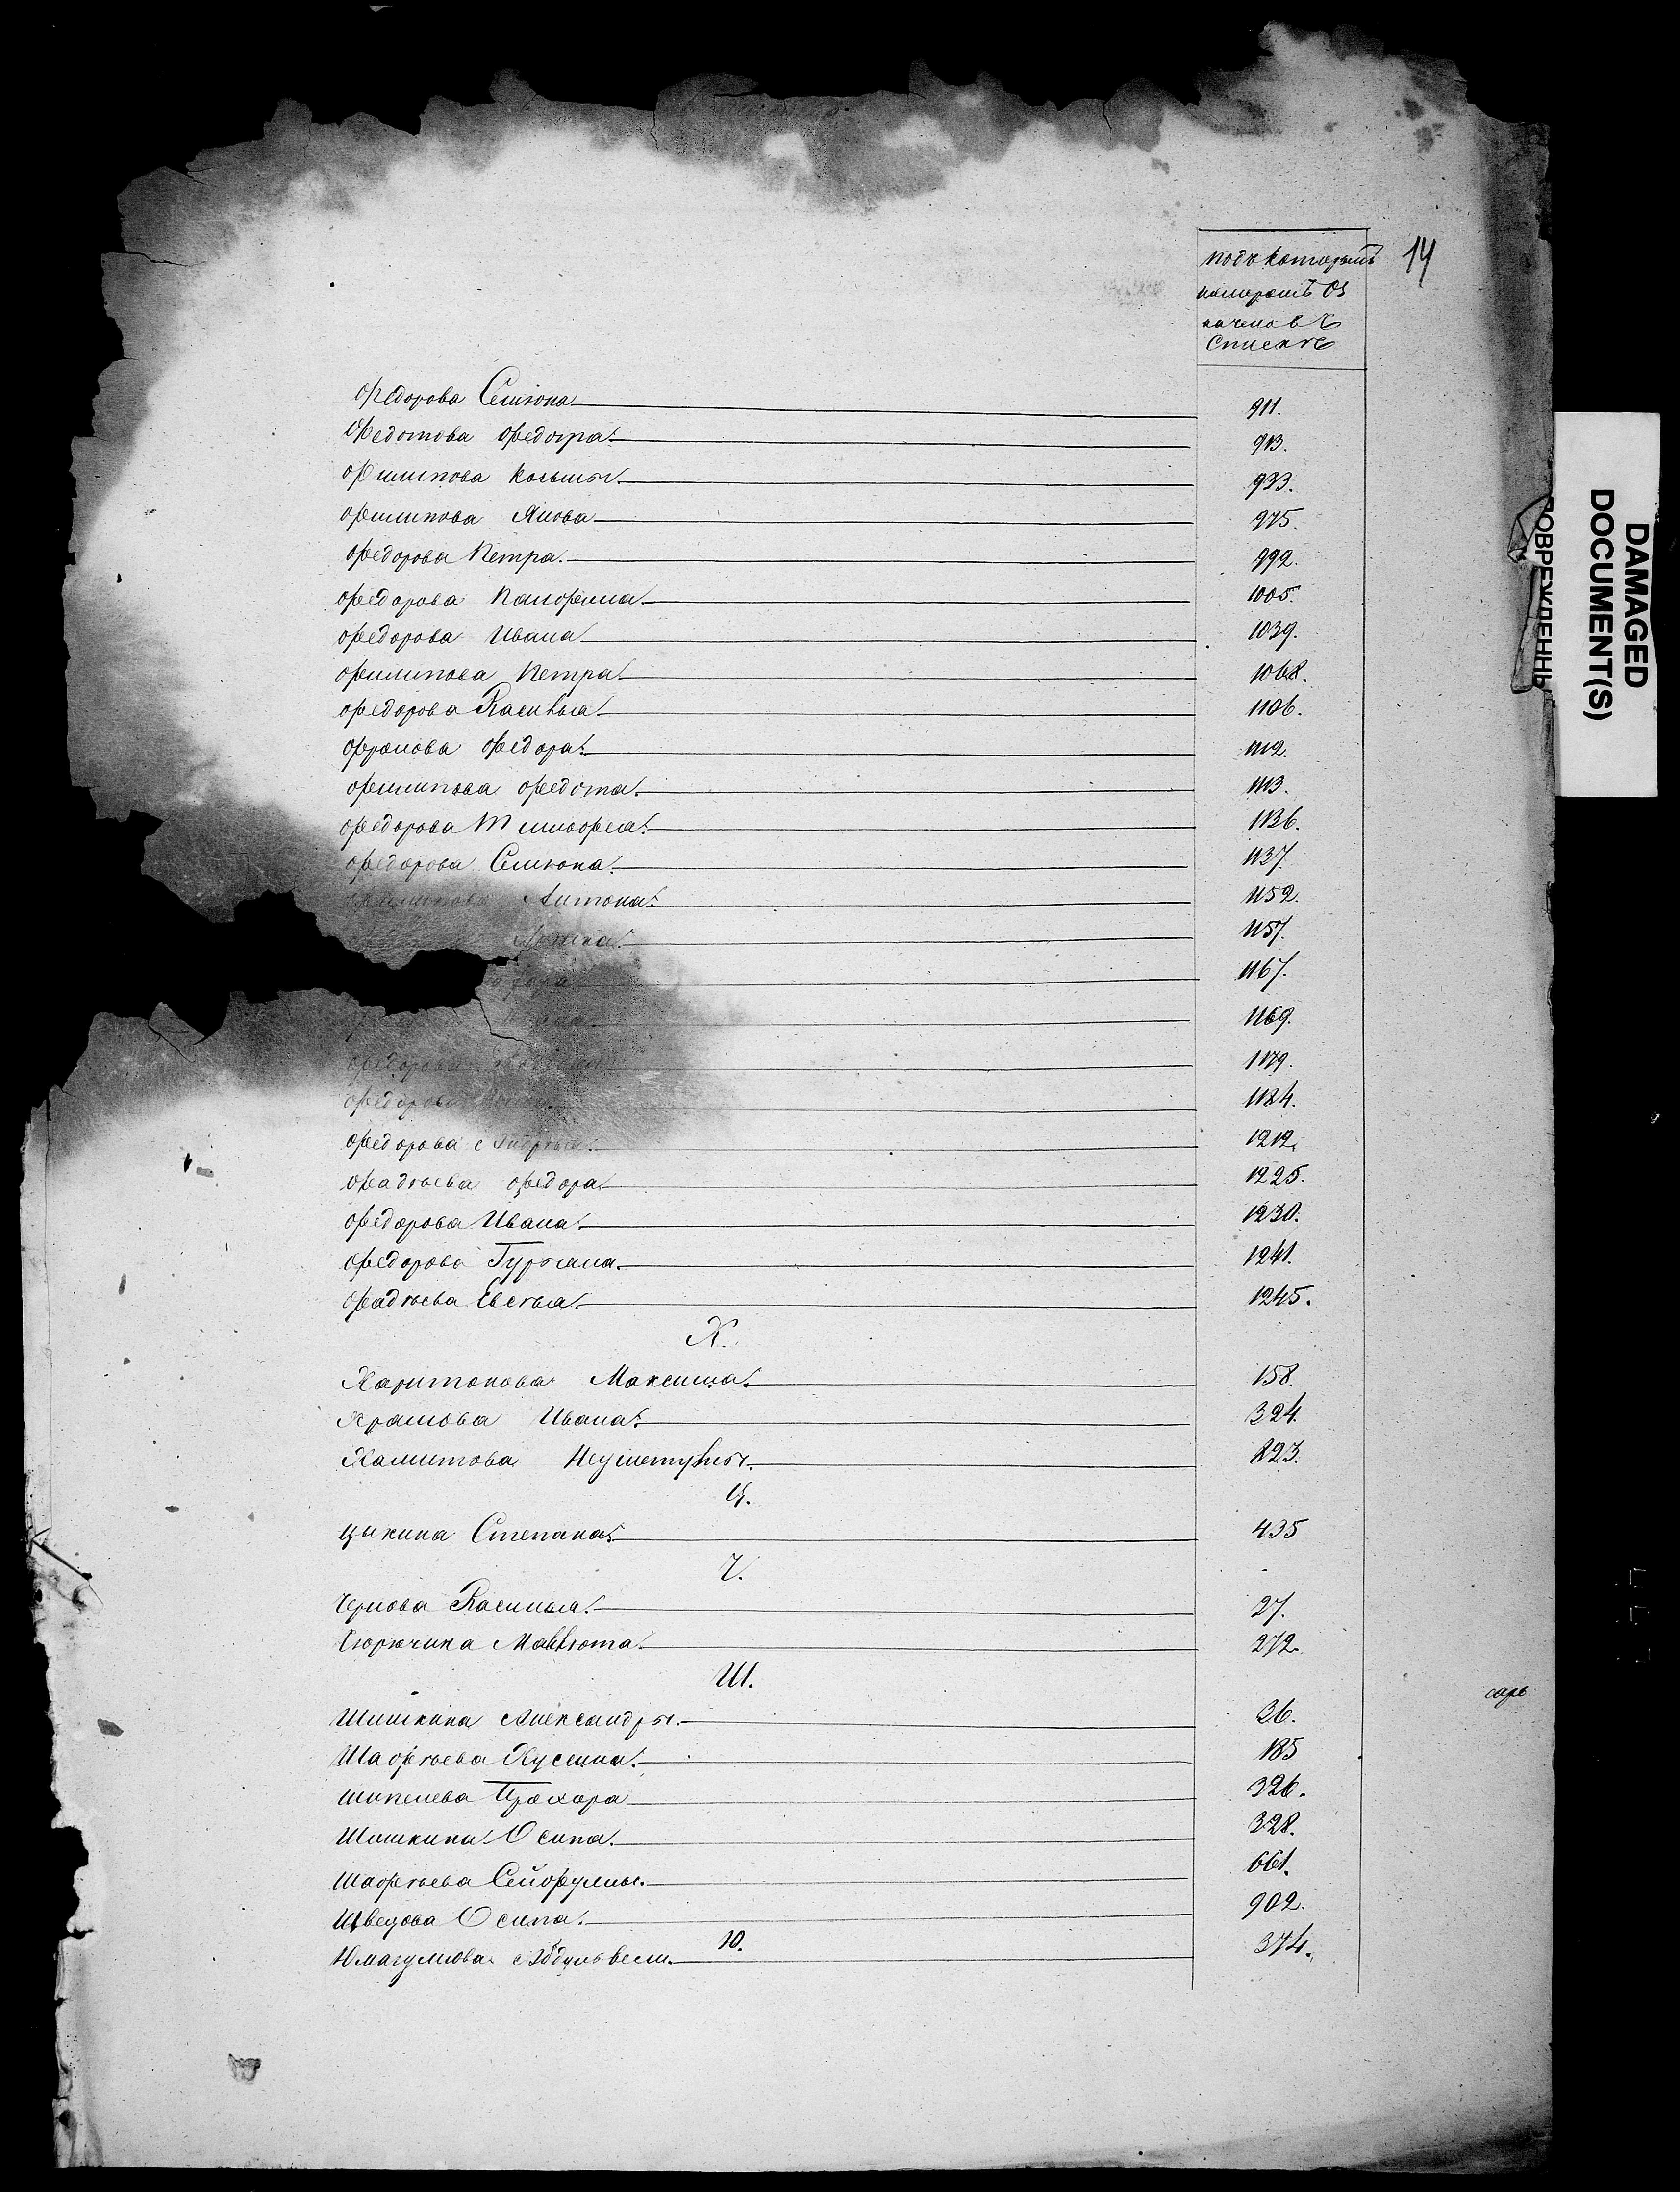 подъ которымъ
номеромъ Оз
наченов ъ
Спискѣ
14
Федорова Семіона 911.
Федотова Федота 913.
Филипова Козьмы. 933.
Филипова Якова 975.
Федорова Петра. 992.
Федорова Панфила 1005.
Федорова Ивана 1039.
Филипова Петра 1068.
Федорова Василья. 1106.
Фролова Федора. 1112.
Филипова Федота. 1113.
Федорова Тимофея. 1136.
Федорова Семіона. 1137.
Филипова Антона. 1152.
1157.
1167.
1169.
Федорова 1179.
Федорова 1184.
Федорова Андрея. 1212.
Фадѣева Федора. 1225.
Федорова Ивана. 1230.
Федорова Гурьяна. 1241.
Фадѣева Евсѣя. 1245.
Х.
Харитонова Максима. 158.
Храмова Ивана. 324.
Халитова 823.
Ц.
Цыкина Степана. 435
Ч.
Чернова Василья. 27.
Чюрючина Мавлюта. 272.
Ш.
Шишкина Александры. 36.
Шафѣева Хусеина. 185
Шипелева Прохора 326.
Шишкина Осипа. 328.
Шафѣева Сейфулы. 661.
Шведова Осипа. 902.
Ю.
Юмагулова Абдулвели. 374.
сарь
DAMAGED
DOCUMENT(S)
ПОВРЕЖДЕННЫ